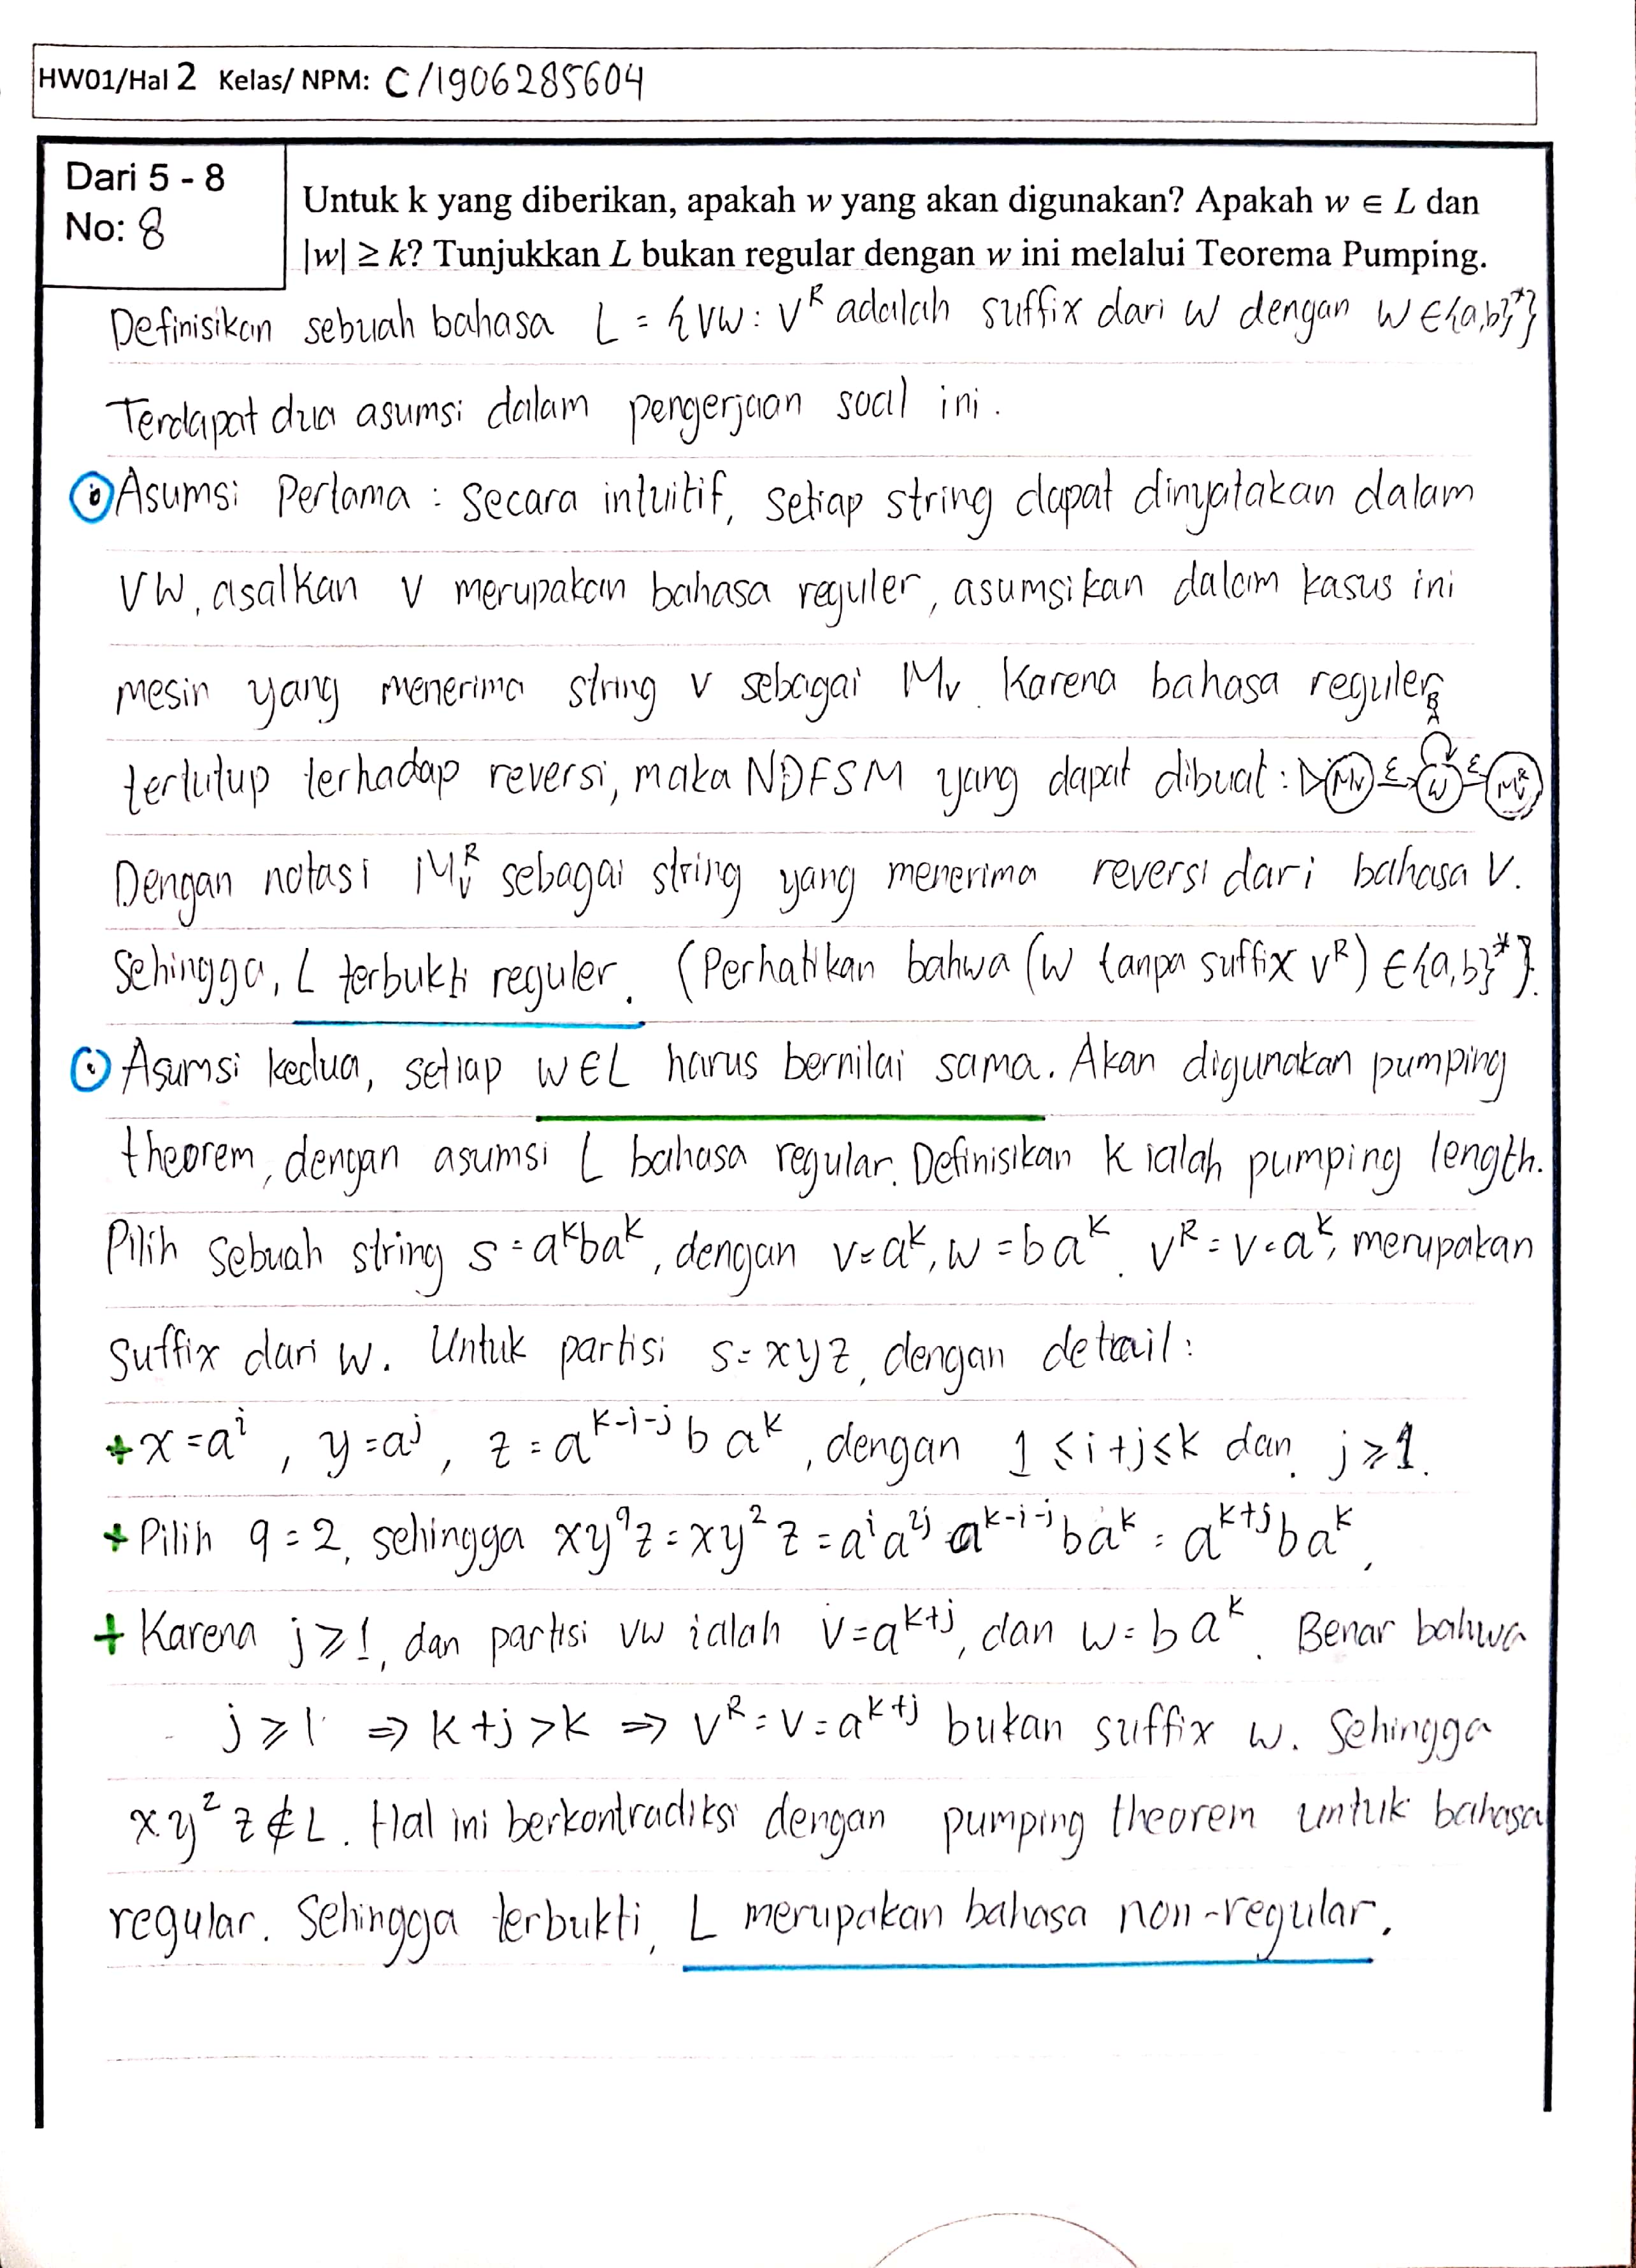 HW01/Hal 2 Kelas/ NPM: C/1906285604
Dari 5 - 8
No: 8
Untuk k yang diberikan, apakah w yang akan digunakan? Apakah w ∈ L dan
|w| ≥ k? Tunjukkan L bukan regular dengan w ini melalui Teorema Pumping.
Definisikan sebuah bahasa L = {vw : v^R adalah suffix dari w dengan w ∈ {a,b}*}
Terdapat dua asumsi dalam pengerjaan soal ini.
Asumsi Pertama : Secara intuitif, setiap string dapat dinyatakan dalam
vw, asalkan v merupakan bahasa reguler, asumsikan dalam kasus ini
mesin yang menerima string v sebagai Mv. Karena bahasa reguler
tertutup terhadap reversi, maka NDFSM yang dapat dibuat : Mv ε w ε Mv^R
Dengan notasi Mv^R sebagai string yang menerima reversi dari bahasa v.
Sehingga, L terbukti reguler. (Perhatikan bahwa (w tanpa suffix v^R) ∈ {a,b}*}.
Asumsi kedua, setiap w∈L harus bernilai sama. Akan digunakan pumping
theorem, dengan asumsi L bahasa regular. Definisikan k ialah pumping length.
Pilih sebuah string s = a^k b a^k, dengan v = a^k, w = b a^k. v^R = v = a^k, merupakan
suffix dari w. Untuk partisi s = xyz, dengan detail :
+ x = a^i , y = a^j , z = a^{k-i-j} b a^k , dengan 1 ≤ i+j ≤ k dan j ≥ 1.
+ Pilih q = 2, sehingga xy^q z = xy^2 z = a^i a^{2j} a^{k-i-j} b a^k = a^{k+j} b a^k.
+ Karena j ≥ 1, dan partisi vw ialah v = a^{k+j}, dan w = b a^k. Benar bahwa
j ≥ 1 ⇒ k+j > k ⇒ v^R = v = a^{k+j} bukan suffix w. Sehingga
xy^2 z ∉ L. Hal ini berkontradiksi dengan pumping theorem untuk bahasa
regular. Sehingga terbukti, L merupakan bahasa non-regular.